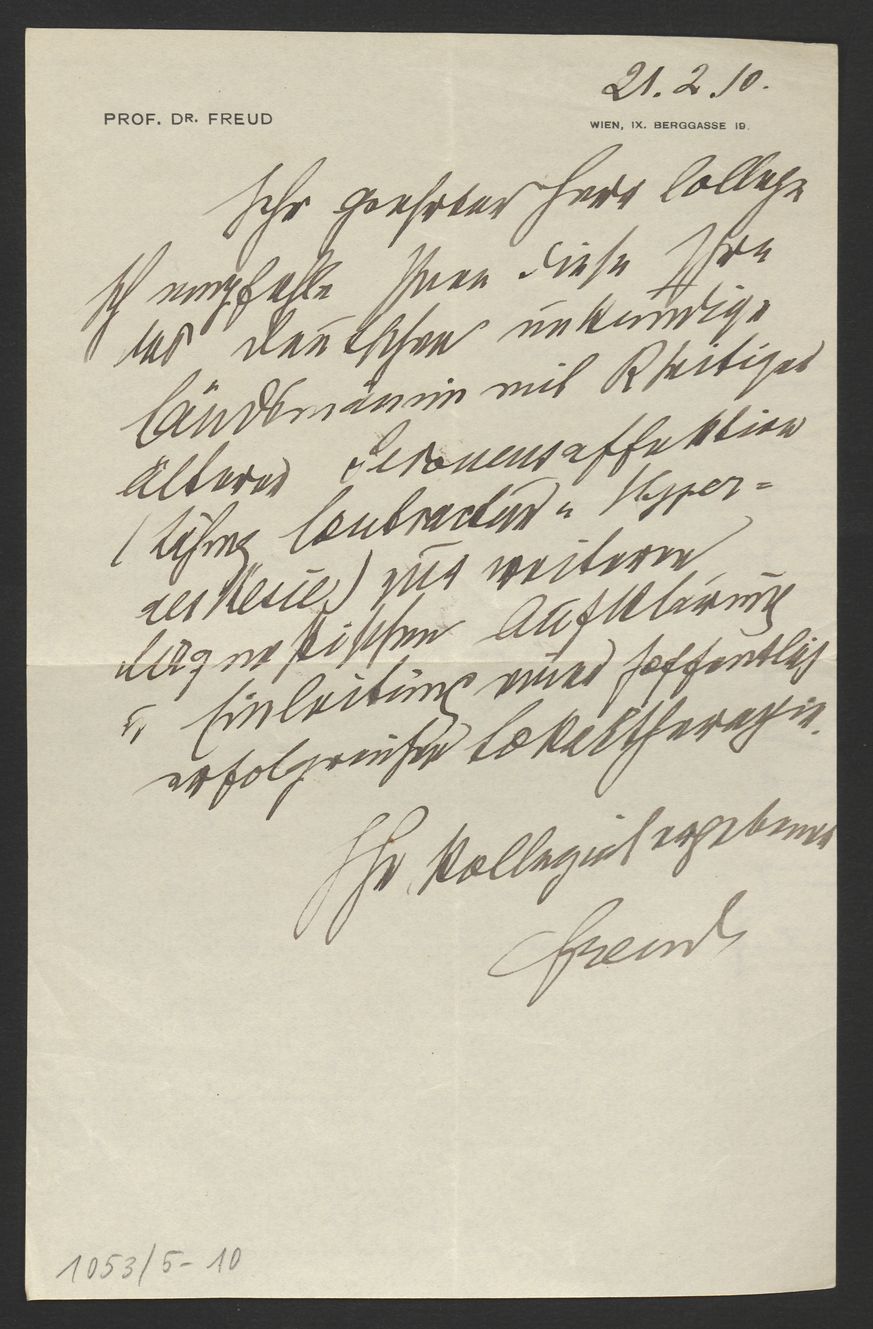 21. 2. 10.
PROF. DR. FREUD
WIEN, IX. BERGGASSE 19.
Sehr geehrter Herr College
Ich empfehle Ihnen diese Ihre
des Deutschen unkundige
Landsmännin mit Rseitiger
älterer affektion
(Contractur u Hyper=
aesthesie) zur weiteren
diagnostischen Aufklärung
u Einleitung einer hoffentlich
erfolgreichen Lokaltherapie.
Ihr kollegial ergebener
Freud
1053/5-10